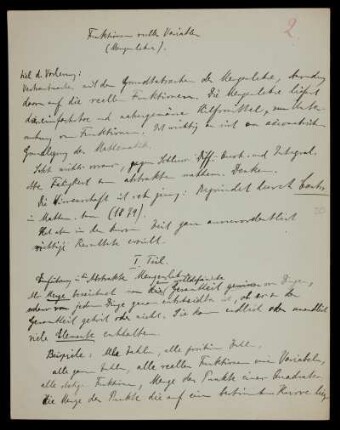 Funktionen reeller Variabler
2
(Mengenlehre).
Ziel d. Vorlesung:
Vertrautmachen mit den Grundtatsachen der Mengenlehre, Anwendung
davon auf die reellen Funktionen. Die Mengenlehre liefert
das einfachste und naturgemässe Hilfsmittel, zur Unter-
suchung von Funktionen. Ist wichtig
Grundlegung der Mathematik.
Diff. u. Integral
abstrakten mathem. Denken.
Die Wissenschaft ist noch jung: Begründet durch Cantor
in Mathem. Ann. (1879).
Hat aber in der kurzen Zeit ganz ausserordentlich
wichtige Resultate erzielt.
I. Teil.
Einführung in die Abstrakte Mengenlehre
Als Menge bezeichnet man die Gesamtheit gewisser Dinge,
wenn von jedem Dinge genau entschieden ist, ob es zu der
Gesamtheit gehört oder nicht. Sie kann endlich oder unendlich
viele Elemente enthalten.
Beispiele: Alle Zahlen, alle positiven Zahlen,
alle ganzen Zahlen, alle reellen Funktionen einer Variabeln,
alle stetigen Funktionen, Menge der Punkte eines Quadrates
Die Menge der Punkte die auf einer bestimmten Kurve liegen